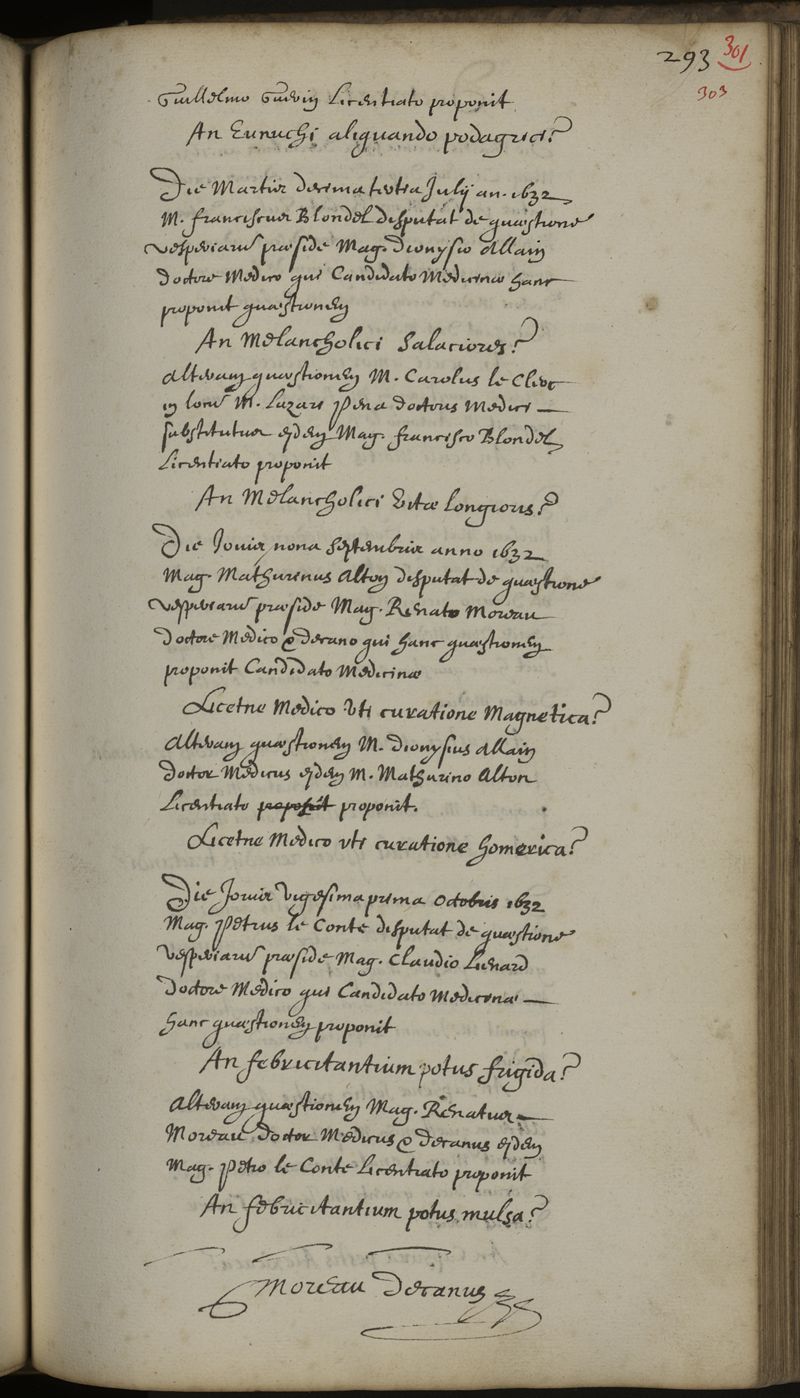 293 301
303
Guillelmo Guerin Licentiato proponit
An Eunuchi aliquando podagrici?
Die Martis decima tertia Julij an. 1632
M. franciscus Blondel disputat de quæstione
vesperiarū præside Mag. Dionysio Allain
doctore Medico qui Candidato Medicinæ hanc
proponit quæstionem
An Melancholici Salaciores?
Alteram quæstionem M. Carolus le Clerc
in locū M. Lazari Pena doctoris Medici
substitutus ejdem Mag. francisco Blondel
Licentiato proponit
An Melancholici vitæ longioris?
Die Jovis nona septembris anno 1632
Mag. Mathurinus Alton disputat de quæstione
vesperiarū præside Mag. Renato Moreau
doctore Medico & decano qui hanc quæstionem
proponit Candidato Medicinæ
Licetne Medico vti curatione Magnetica?
Alteram quæstionem M. Dionysius Allain
doctor Medicus ejdem M. Mathurino Alton
Licentiato proponit.
Licetne Medico vti curatione homerica?
Die Jovis vigesima prima octobris 1632
Mag. Petrus le Conte disputat de quæstione
vesperiarū præside Mag. Claudio Lienard
Doctore Medico qui Candidato Medicinæ
hanc quæstionem proponit
An febricitantium potus frigida?
Alteram quæstionem Mag. Renatus
Moreau doctor Medicus & decanus ejdem
Mag. Petro le Conte Licentiato proponit
An febricitantium potus mulsa?
Moreau Decanus